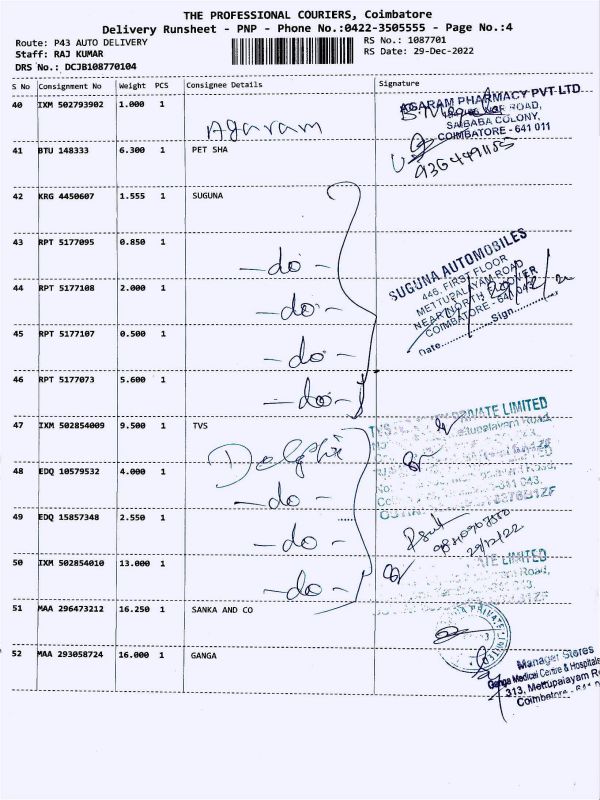 THE PROFESSIONAL COURIERS, Coimbatore
Delivery Runsheet - PNP - Phone No.:0422-3505555 - Page No.:4
Route: P43 AUTO DELIVERY
Staff: RAJ KUMAR
DRS No.: DCJB108770104
RS No.: 1087701
RS Date: 29-Dec-2022
S No Consignment No Weight PCS Consignee Details Signature
40 IXM 502793902 1.000 1
Agaram
AGARAM PHARMACY PVT LTD
ROAD,
SAIBABA COLONY,
COIMBATORE - 641 011
41 BTU 148333 6.300 1 PET SHA
42 KRG 4450607 1.555 1 SUGUNA
43 RPT 5177095 0.850 1
-do-
44 RPT 5177108 2.000 1
-do-
45 RPT 5177107 0.500 1
-do-
46 RPT 5177073 5.600 1
-do-
SUGUNA AUTOMOBILES
446, FIRST FLOOR
METTUPALAYAM ROAD
NEAR NORTH FLYOVER
COIMBATORE - 641
Date Sign
47 IXM 502854009 9.500 1 TVS
PRIVATE LIMITED
Mettupalayam Road,
48 EDQ 10579532 4.000 1
-do-
49 EDQ 15857348 2.550 1
-do-
29/12/22
50 IXM 502854010 13.000 1
-do-
LIMITED
Road,
51 MAA 296473212 16.250 1 SANKA AND CO
PRIVATE LIMITED
52 MAA 293058724 16.000 1 GANGA
Manager Stores
Ganga Medical Centre & Hospitals
313, Mettupalayam R
Coimbatore